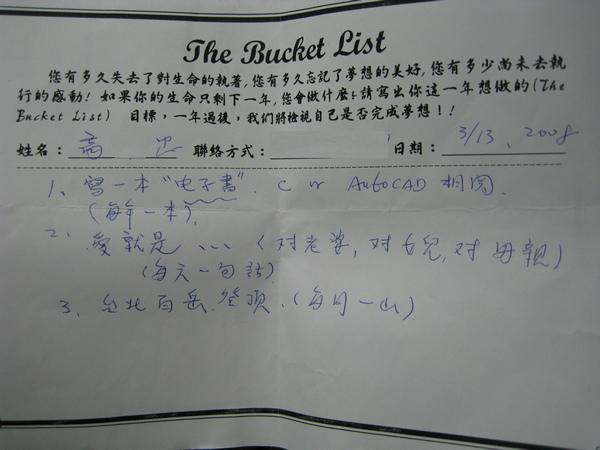 The Bucket List
您有多久失去了對生命的執著,您有多久忘記了夢想的美好,您有多少尚未去執
行的感動! 如果你的生命只剩下一年,您會做什麼?請寫出你這一年想做的(The
Bucket List) 目標,一年過後,我們將檢視自己是否完成夢想!!
姓名: 高 聯絡方式: 日期: 3/13, 2008
1、寫一本"电子書". C or AutoCAD 相関.
(每年一本).
2、愛就是、、、(对老婆,对女兒,对母親)
(每天一句話)
3、台北百岳登頂.(每月一山)